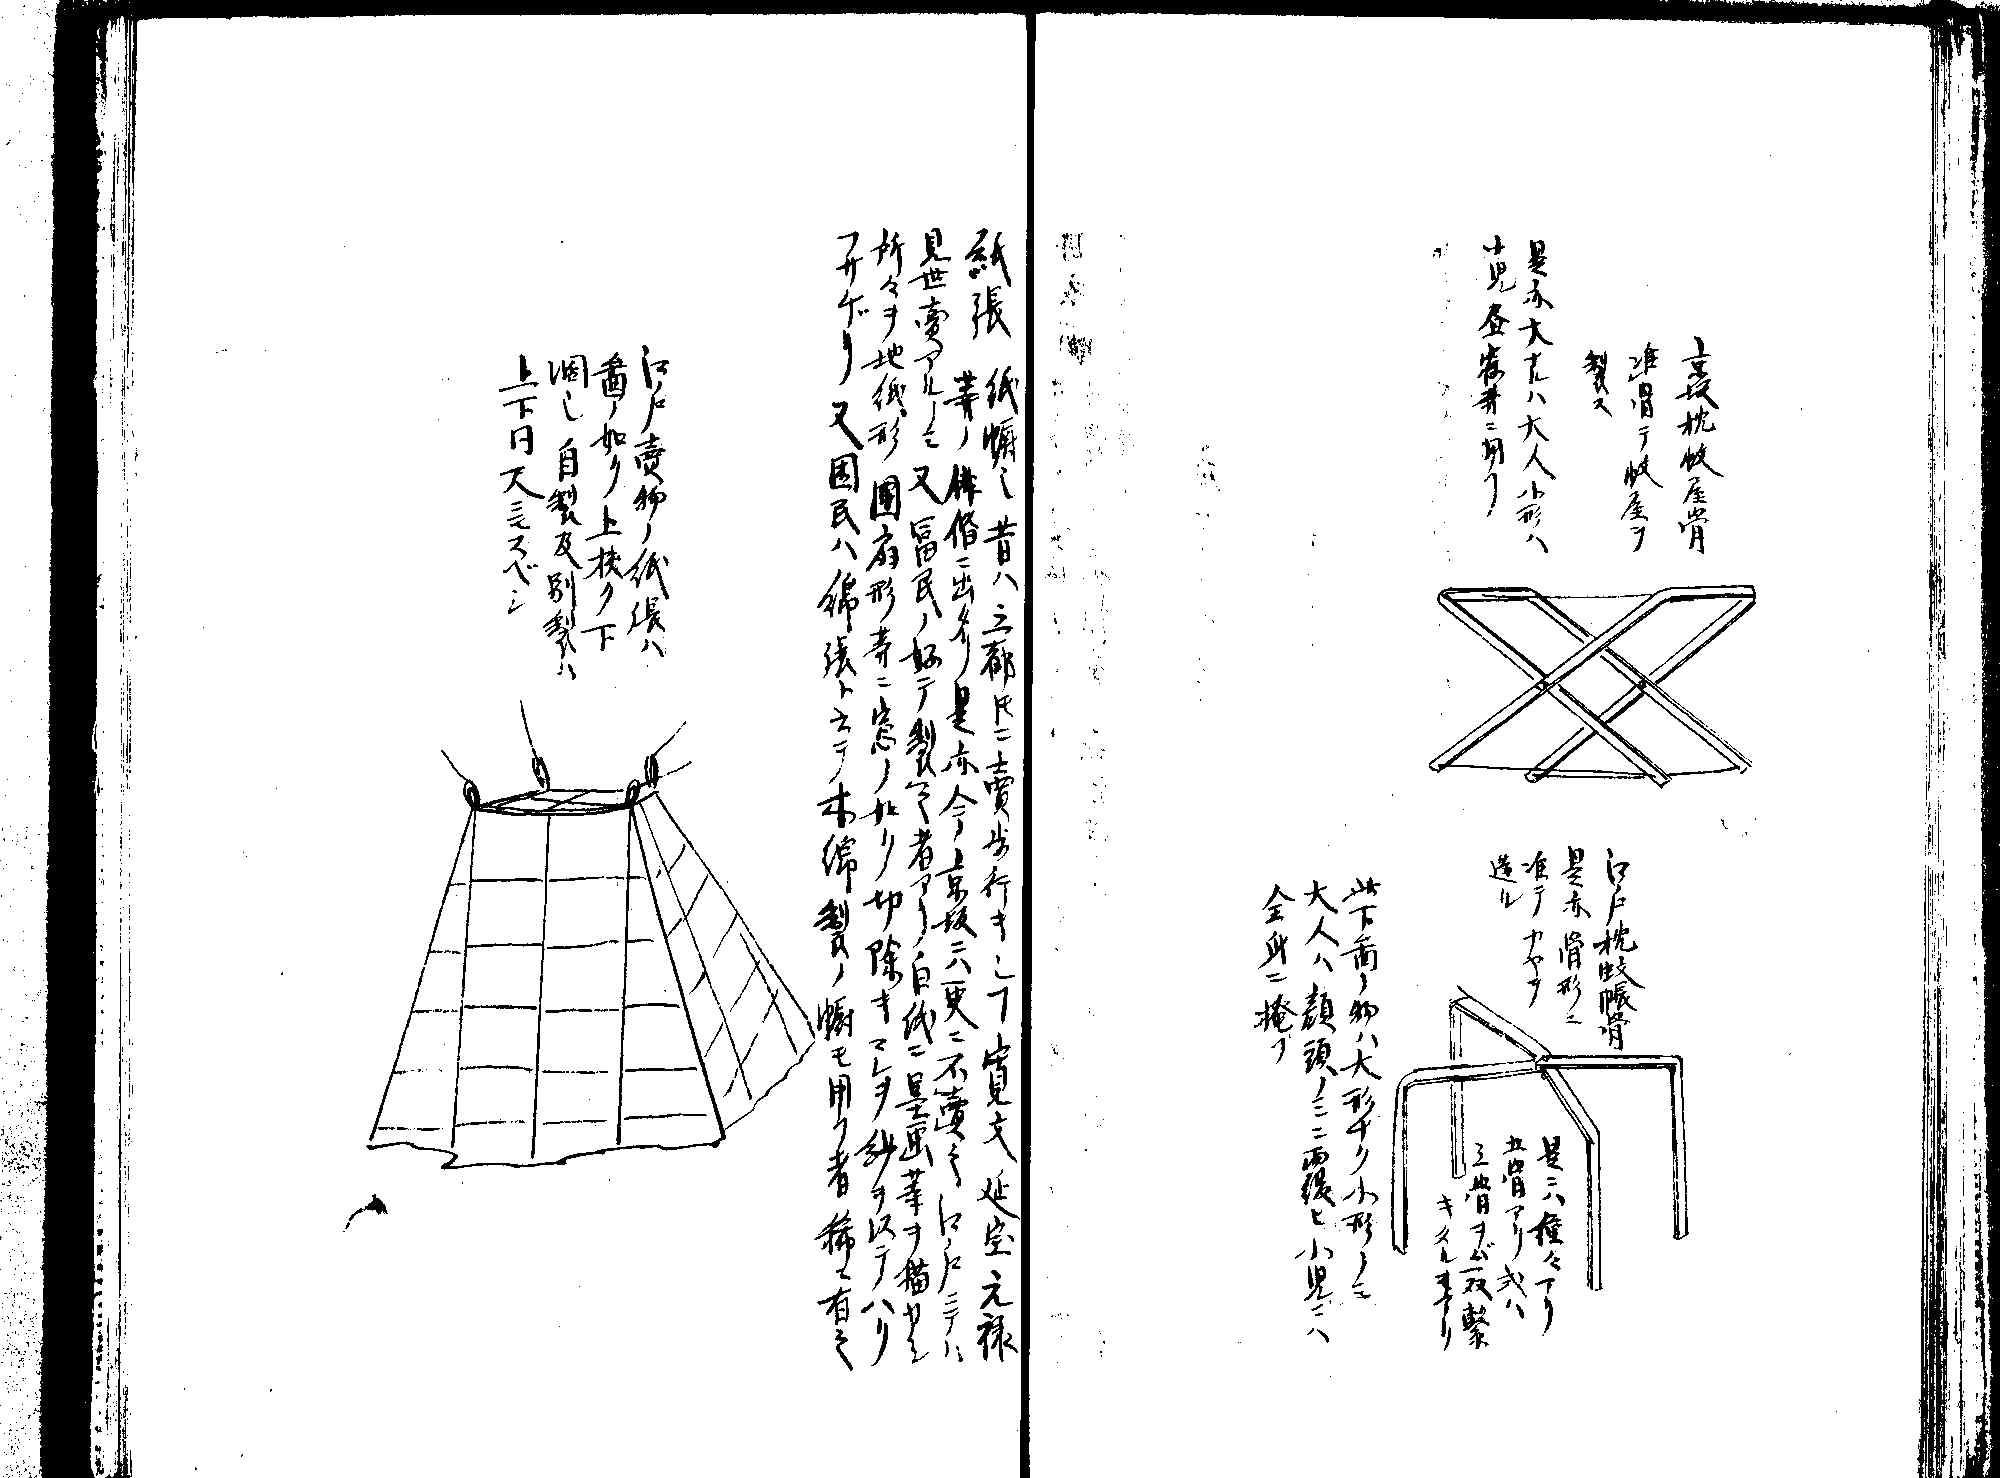 京坂枕蚊屋骨
准骨テ蚊屋ヲ
製ス
是亦大ナルハ大人小形ハ
小児昼寐等ニ用フ
江戸枕蚊帳骨
是亦骨形ニ
准テカヤヲ
造ル
是ニハ種々アリ
五骨アリ或ハ
三骨ヲ
此下畫ノ物ハ大形ナク小形ノミ
大人ハ顔頭ノミニ覆ヒ小児ニハ
全身ニ掩フ
紙張 紙幮也昔ハ三都トモニ賣歩行キシ下寛文延宝元禄
等ノ俳偕ニ出タリ是亦今ハ京坂ニハ更ニ不賣之江戸ニテハ
見世賣アルノミ又冨民ノ好テ製之者アリ白紙ニ墨画等ヲ描カシ
所々ヲ地紙形團扇形等ニ窓ノ如ク切除キコレヲ紗ヲ以テハリ
フサゲリ又困民ハ綿張ト云テ木綿製ノ幮モ用フ者稀ニ有之
江戸賣物ノ紙張ハ
畫ノ如ク上狭ク下
濶し自製及別製ハ
上下同大ニモスベシ